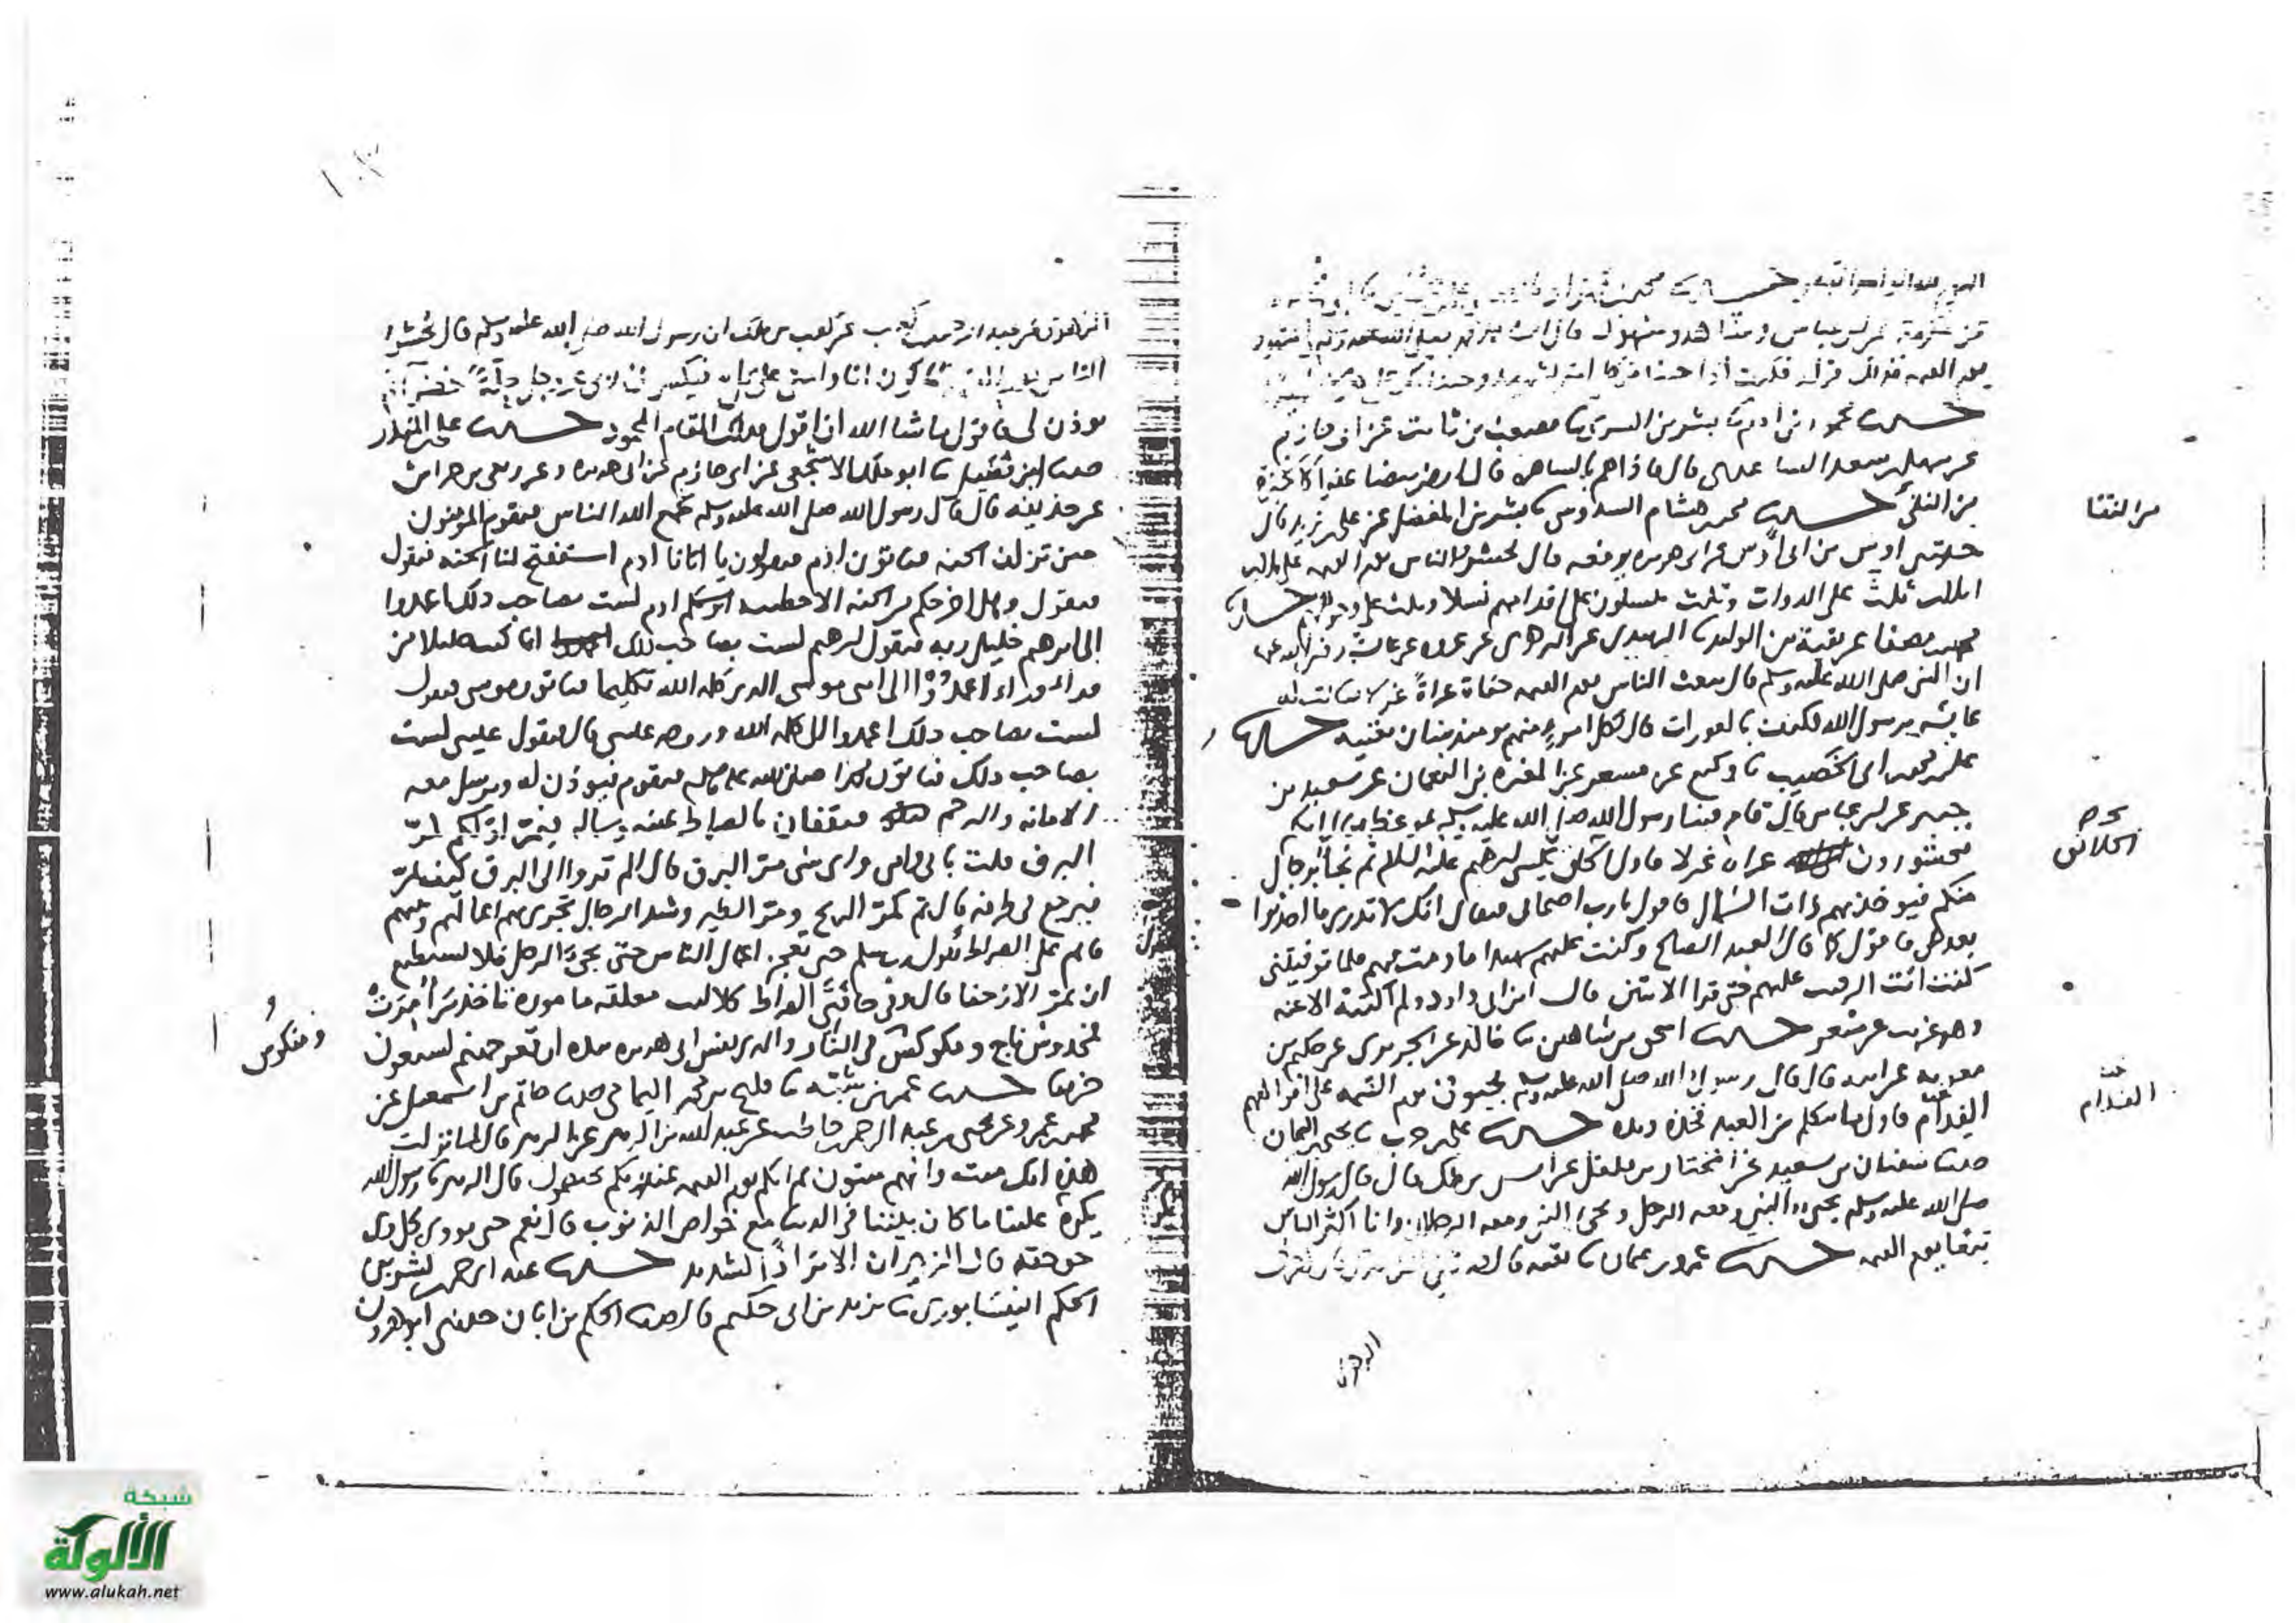 عن عكرمة عن ابن عباس وشاهد ومشهود قال
يوم القيمة
حدثنا محمود بن ادم نا بشر بن السري نا مصعب بن ثابت عن ابي حازم
عن سهل بن سعد الساعدي قال فاذا هم بالساهرة قال ارض بيضا عفرا كالخبزة
من النقي حدثنا محمد بن هشام السدوسي نا بشر بن المفضل عن علي بن زيد قال
حدثني اوس بن ابي اوس عن ابي هريرة يرفعه قال يحشر الناس يوم القيمة على ثلثة
اثلاث ثلث على الدواب وثلث ينسلون على اقدامهم نسلا وثلث على وجوههم حدثنا
محمد بن مصفا عن بقية بن الوليد نا الزبيدي عن الزهري عن عروة عن عايشة رضي الله عنها
ان النبي صلى الله عليه وسلم قال يبعث الناس يوم القيمة حفاة عراة غرلا فقالت له
عايشة يرسول الله فكيف بالعورات قال لكل امرئ منهم يومئذ شان يغنيه حدثنا
علي بن محمد بن ابي الخصيب نا وكيع عن مسعر عن المغيرة بن النعمان عن سعيد بن
جبير عن ابن عباس قال قام فينا رسول الله صلى الله عليه وسلم بموعظة فقال انكم
محشورون عراة غرلا فاول الخلق يكسى ابرهيم عليه السلام ثم يجاء برجال
منكم فيوخذ بهم ذات الشمال فاقول يا رب اصحابي فيقال انك لا تدري ما احدثوا
بعدك فاقول كما قال العبد الصالح وكنت عليهم شهيدا ما دمت فيهم فلما توفيتني
كنت انت الرقيب عليهم حتى قرا الايتين قال ابن ابي داود ولم اكتبه الا عنه
وهو غريب عن مسعر حدثنا اسحق بن شاهين نا خالد عن الجريري عن حكيم بن
معوية عن ابيه قال قال رسول الله صلى الله عليه وسلم يجيون يوم القيمة على افواههم
الفدام فاول ما يتكلم من العبد فخذه ويده حدثنا علي بن حرب نا يحيى بن اليمان
حدثنا سفيان بن سعيد عن المختار بن فلفل عن انس بن ملك قال قال رسول الله
صلى الله عليه وسلم يجيء النبي ومعه الرجل ويجيء النبي ومعه الرجلان وانا اكثر الناس
تبعا يوم القيمة حدثنا عمرو بن عثمان نا بقية قال
الزهري
من النقا
الخلائق
الفدام
الزهري عن عبد الرحمن بن كعب عن كعب بن ملك ان رسول الله صلى الله عليه وسلم قال يحشر
الناس يوم القيمة فاكون انا وامتي على تل فيكسوني ربي عز وجل حلة خضرا ثم
يوذن لي فاقول ما شا الله ان اقول فذلك المقام المحمود حدثنا علي بن المنذر
حدثنا ابن فضيل نا ابو ملك الاشجعي عن ابي حازم عن ابي هريرة وعن ربعي بن حراش
عن حذيفة قال قال رسول الله صلى الله عليه وسلم يجمع الله الناس فيقوم المومنون
حين تزلف الجنة فياتون ادم فيقولون يا ابانا ادم استفتح لنا الجنة فيقول
فيقول وهل اخرجكم من الجنة الا خطيئة ابوكم ادم لست بصاحب ذلك اعمدوا
الى ابرهيم خليل ربه فيقول ابرهيم لست بصاحب ذلك انما كنت خليلا من
وراء وراء اعمدوا الى ابني موسى الذي كلمه الله تكليما فياتون موسى فيقول
لست بصاحب ذلك اعمدوا الى كلمة الله وروحه عيسى قال فيقول عيسى لست
بصاحب ذلك فياتون محمدا صلى الله عليه وسلم فيقوم فيوذن له ويرسل معه
الامانة والرحم فيقفان بالصراط يمينه وشماله فيمر اولكم كمر
البرق قلت بابي وامي واي شي مر البرق قال الم تروا الى البرق كيف يمر
فيرجع في طرفة قال ثم كمر الريح ومر الطير وشد الرجال تجري بهم اعمالهم ونبيكم
قائم على الصراط يقول رب سلم حتى تعجز اعمال الناس حتى يجيء الرجل فلا يستطيع
ان يمر الا زحفا قال وفي حافتي الصراط كلاليب معلقة مامورة تاخذ من امرت
فمخدوش ناج ومكوكس في النار والذي نفس ابي هريرة بيده ان قعر جهنم لسبعون
خريفا حدثنا عمر بن شبة نا فليح بن محمد اليمامي حدثنا حاتم بن اسمعيل عن
محمد بن عمرو عن يحيى بن عبد الرحمن بن حاطب عن عبد الله بن الزبير عن الزبير قال لما نزلت
هذه انك ميت وانهم ميتون ثم انكم يوم القيمة عند ربكم تختصمون قال الزبير يا رسول الله
يكرر علينا ما كان بيننا في الدنيا مع خواص الذنوب قال نعم حتى يودى كل ذي
حق حقه قال الزبير ان الامر اذا لشديد حدثنا عبد الرحمن بن بشر بن
الحكم النيسابوري نا يزيد بن ابي حكيم قال حدثنا الحكم بن ابان حدثني ابو هرون
ومنكوس
شبكة
الألوكة
www.alukah.net